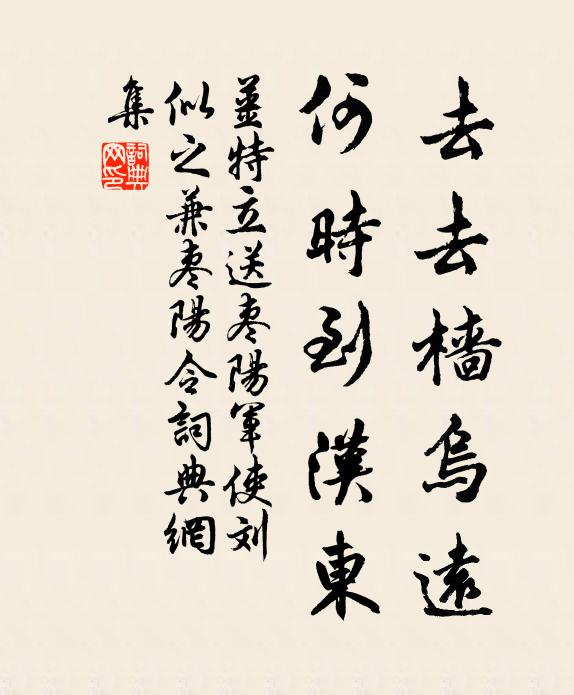 去去檣烏遠
何時到漢東
姜特立送枣陽軍使刘
似之兼枣陽令詞典網
集
詞典
网印